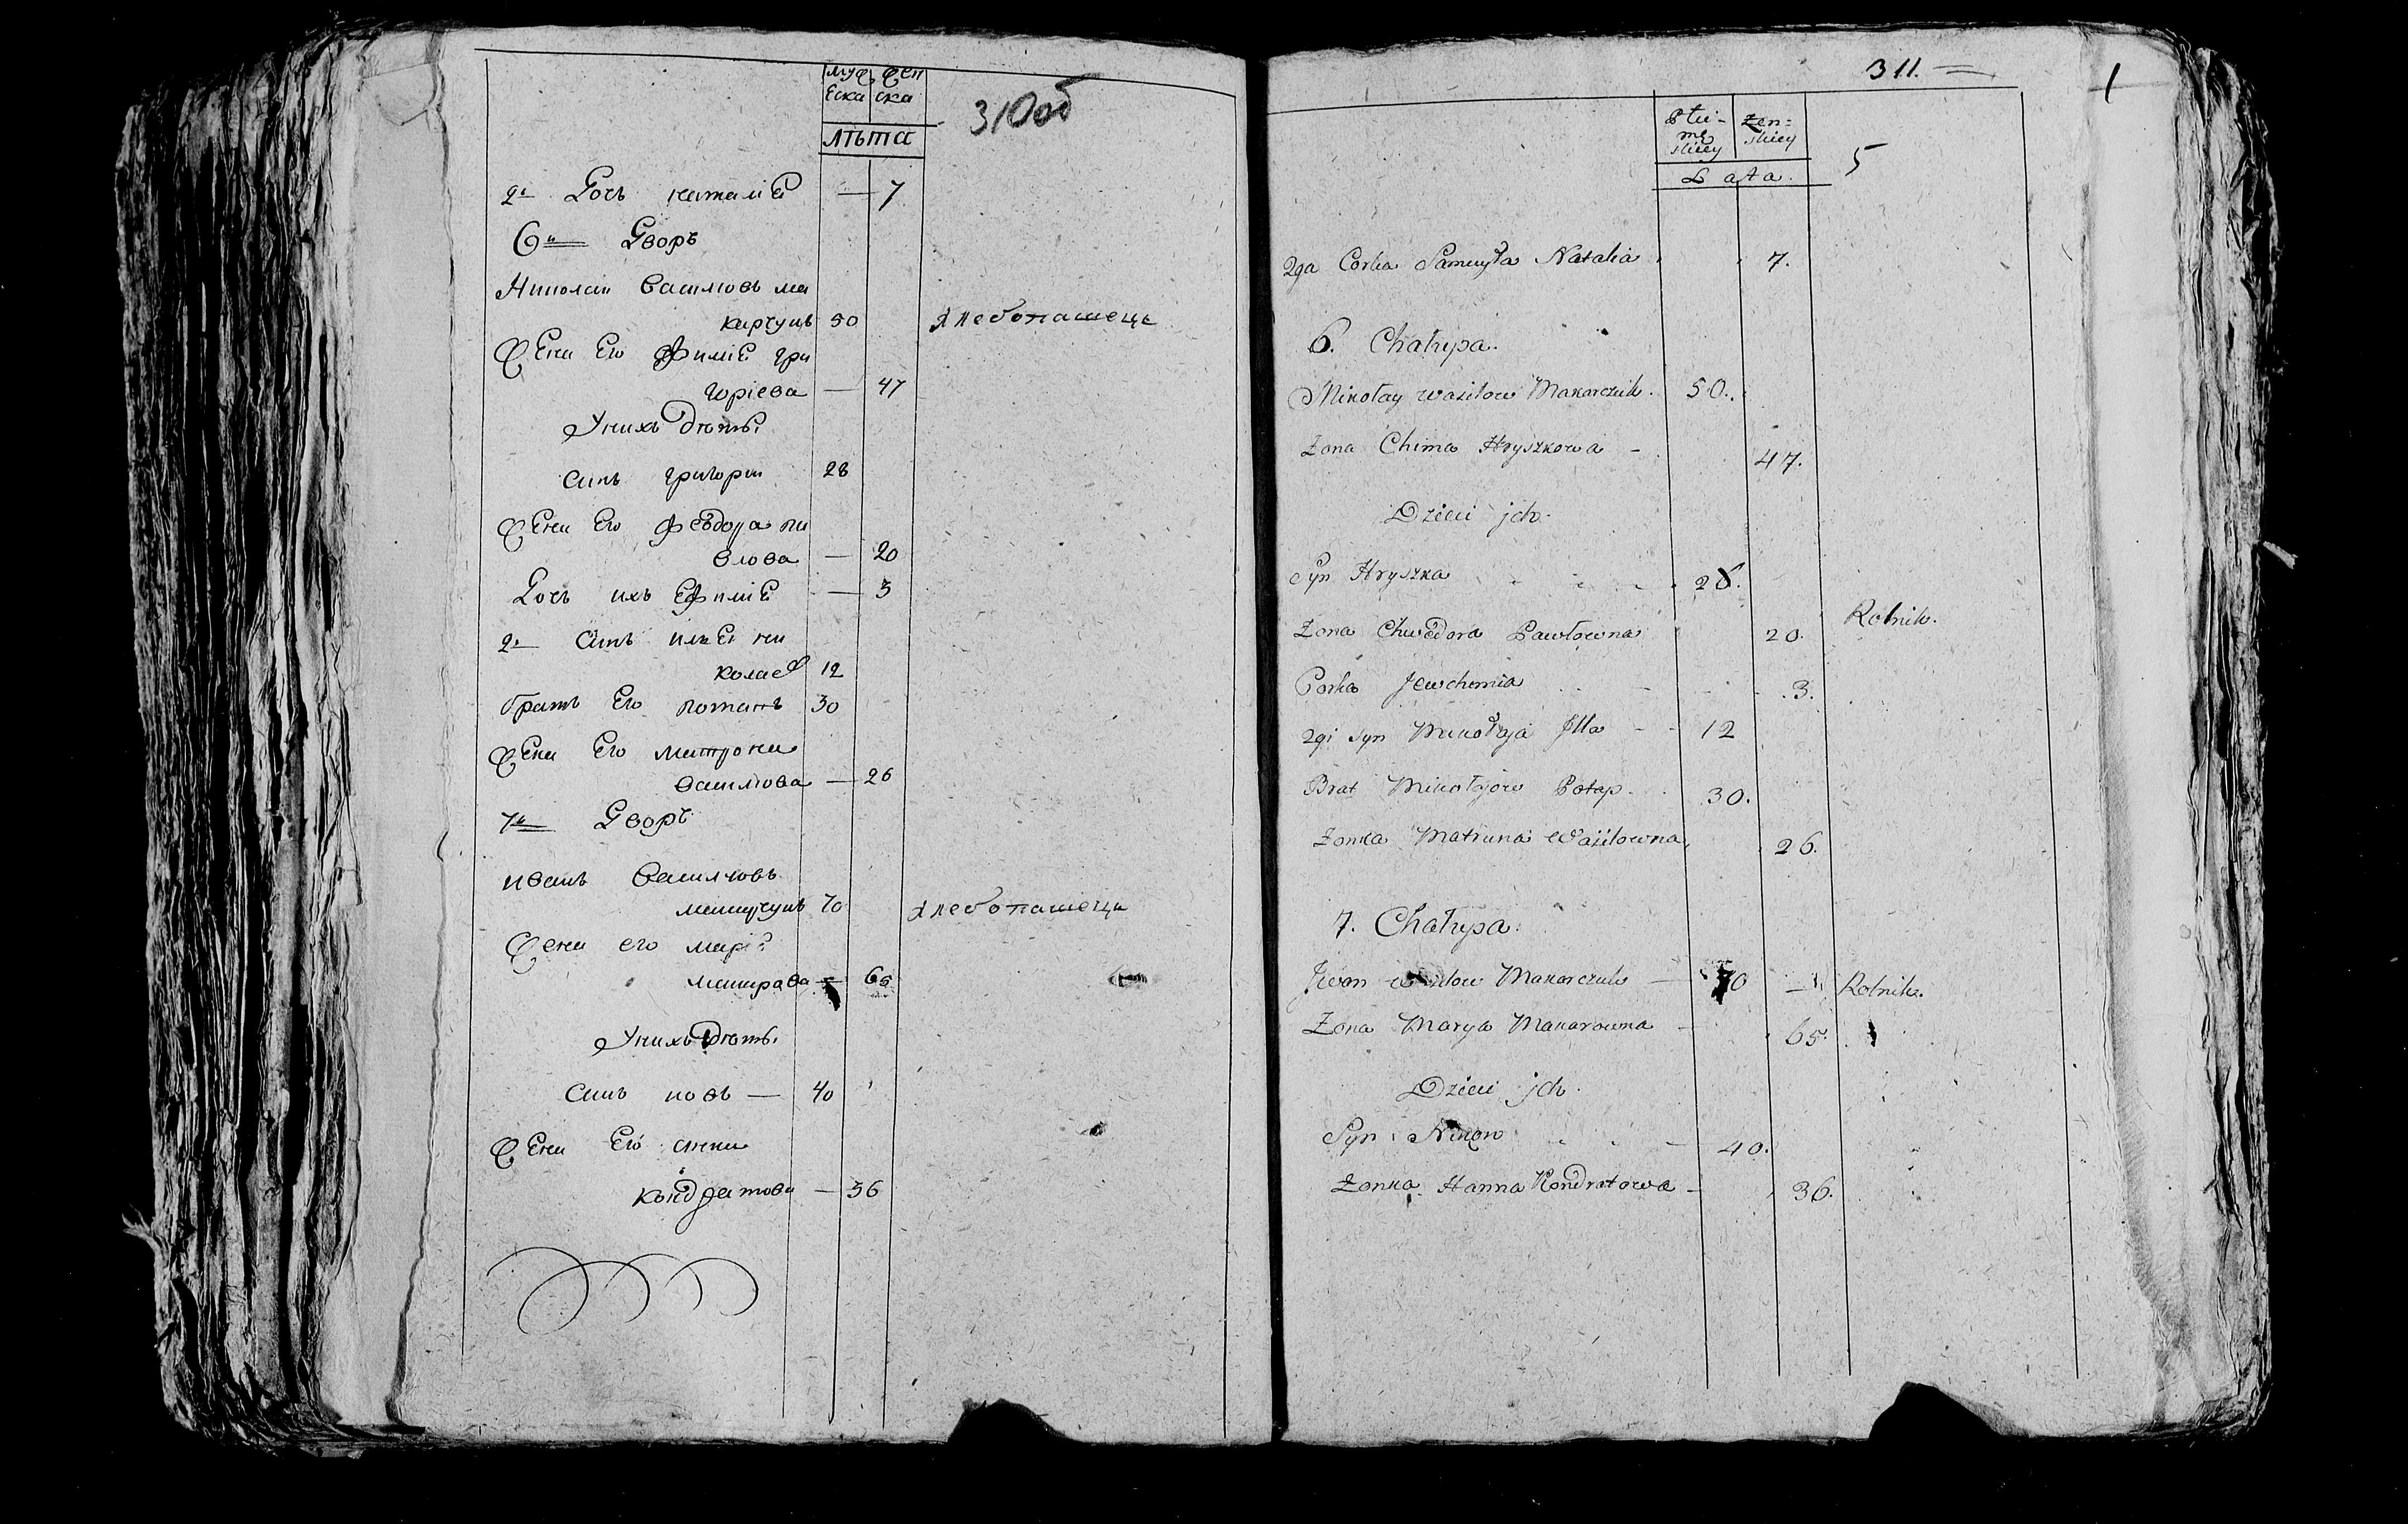 муж жен
еска ска
310об
лѣта
2я Дочь наталіѧ — 7
6й Дворъ
Николаи Василювъ ма
карчукъ 50 хлебопашецъ
Жена Его Фиміѧ гри
горіева — 47
У нихъ дѣти
синъ григори 28
Жена Его Феѡдора па
влова — 20
Дочь ихъ Ефиміѧ — 3
2й Синъ илиѧ ни
колаев 12
братъ Его потапъ 30
Жена Его матрона
василюва — 26
7й Дворъ
иванъ Василювъ
макарчукъ 70 хлебопашецъ
Жена его маріѧ
макарова — 65
У нихъ Дѣти
Синъ ковъ — 40
Жена Его анна
кондратова — 36
311.
1
5
Płci
mę
skiey
żen=
skiey
Lata.
2ga Corka Samuyła Natalia 7.
6. Chałupa.
Mikołay wasilow Makarczuk. 50.
Zona Chima Hryszkowa - 47.
Dzieci jch.
Syn Hryszka 28.
Zona Chwedora Pawłowna 20. Rolnik.
Corka Jewchemia 3.
2gi syn Mikołaja Illa - - 12
Brat Mikołajow Potap. 30.
Zonka Matruna Wasilowna. 26.
7. Chałupa.
Jwan wasilow Makarczuk — 70 — Rolnik.
Zona Marya Makarowna - 65.
Dzieci jch.
Syn Nikon - 40.
Zonka Hanna Kondratowa - 36.